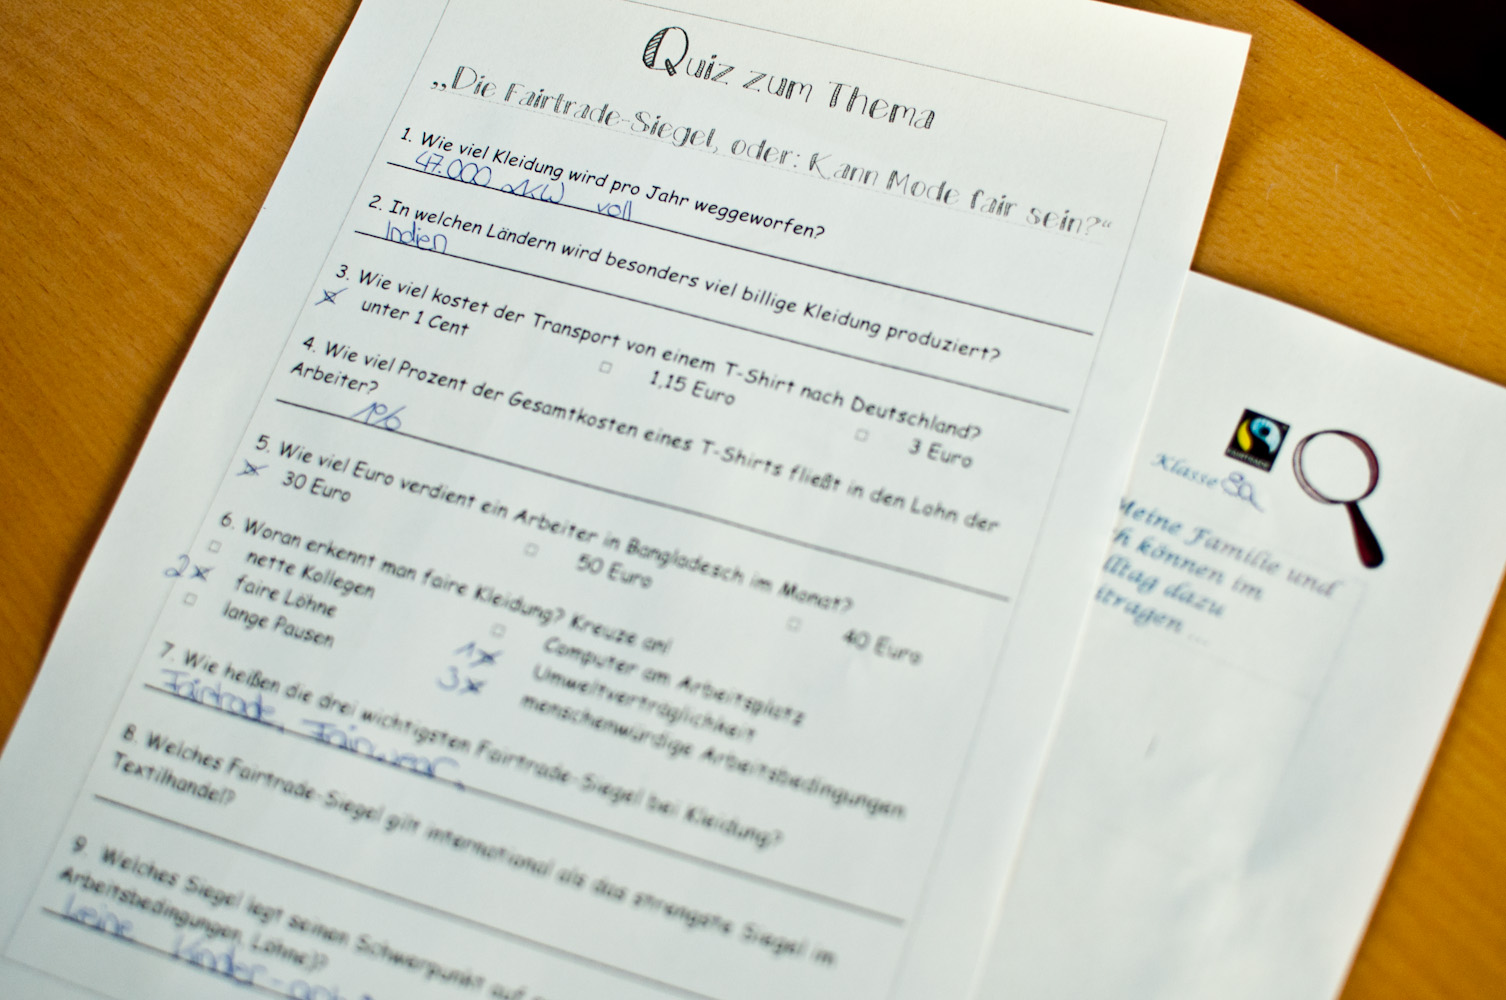 Quiz zum Thema
„Die Fairtrade-Siegel, oder: Kann Mode fair sein?“
1. Wie viel Kleidung wird pro Jahr weggeworfen?
47.000 LKW voll
2. In welchen Ländern wird besonders viel billige Kleidung produziert?
Indien
3. Wie viel kostet der Transport von einem T-Shirt nach Deutschland?
unter 1 Cent 1,15 Euro 3 Euro
4. Wie viel Prozent der Gesamtkosten eines T-Shirts fließt in den Lohn der
Arbeiter?
1%
5. Wie viel Euro verdient ein Arbeiter in Bangladesch im Monat?
30 Euro 50 Euro 40 Euro
6. Woran erkennt man faire Kleidung? Kreuze an!
nette Kollegen Computer am Arbeitsplatz
2x faire Löhne 1x Umweltverträglichkeit
lange Pausen 3x menschenwürdige Arbeitsbedingungen
7. Wie heißen die drei wichtigsten Fairtrade-Siegel bei Kleidung?
Fairtrade, Fairwear,
8. Welches Fairtrade-Siegel gilt international als das strengste Siegel im
Textilhandel?
9. Welches Siegel legt seinen Schwerpunkt auf
Arbeitsbedingungen, Löhne)?
keine Kinder-
FAIRTRADE
Klasse 8a
Meine Familie und
ch können im
lltag dazu
itragen ...